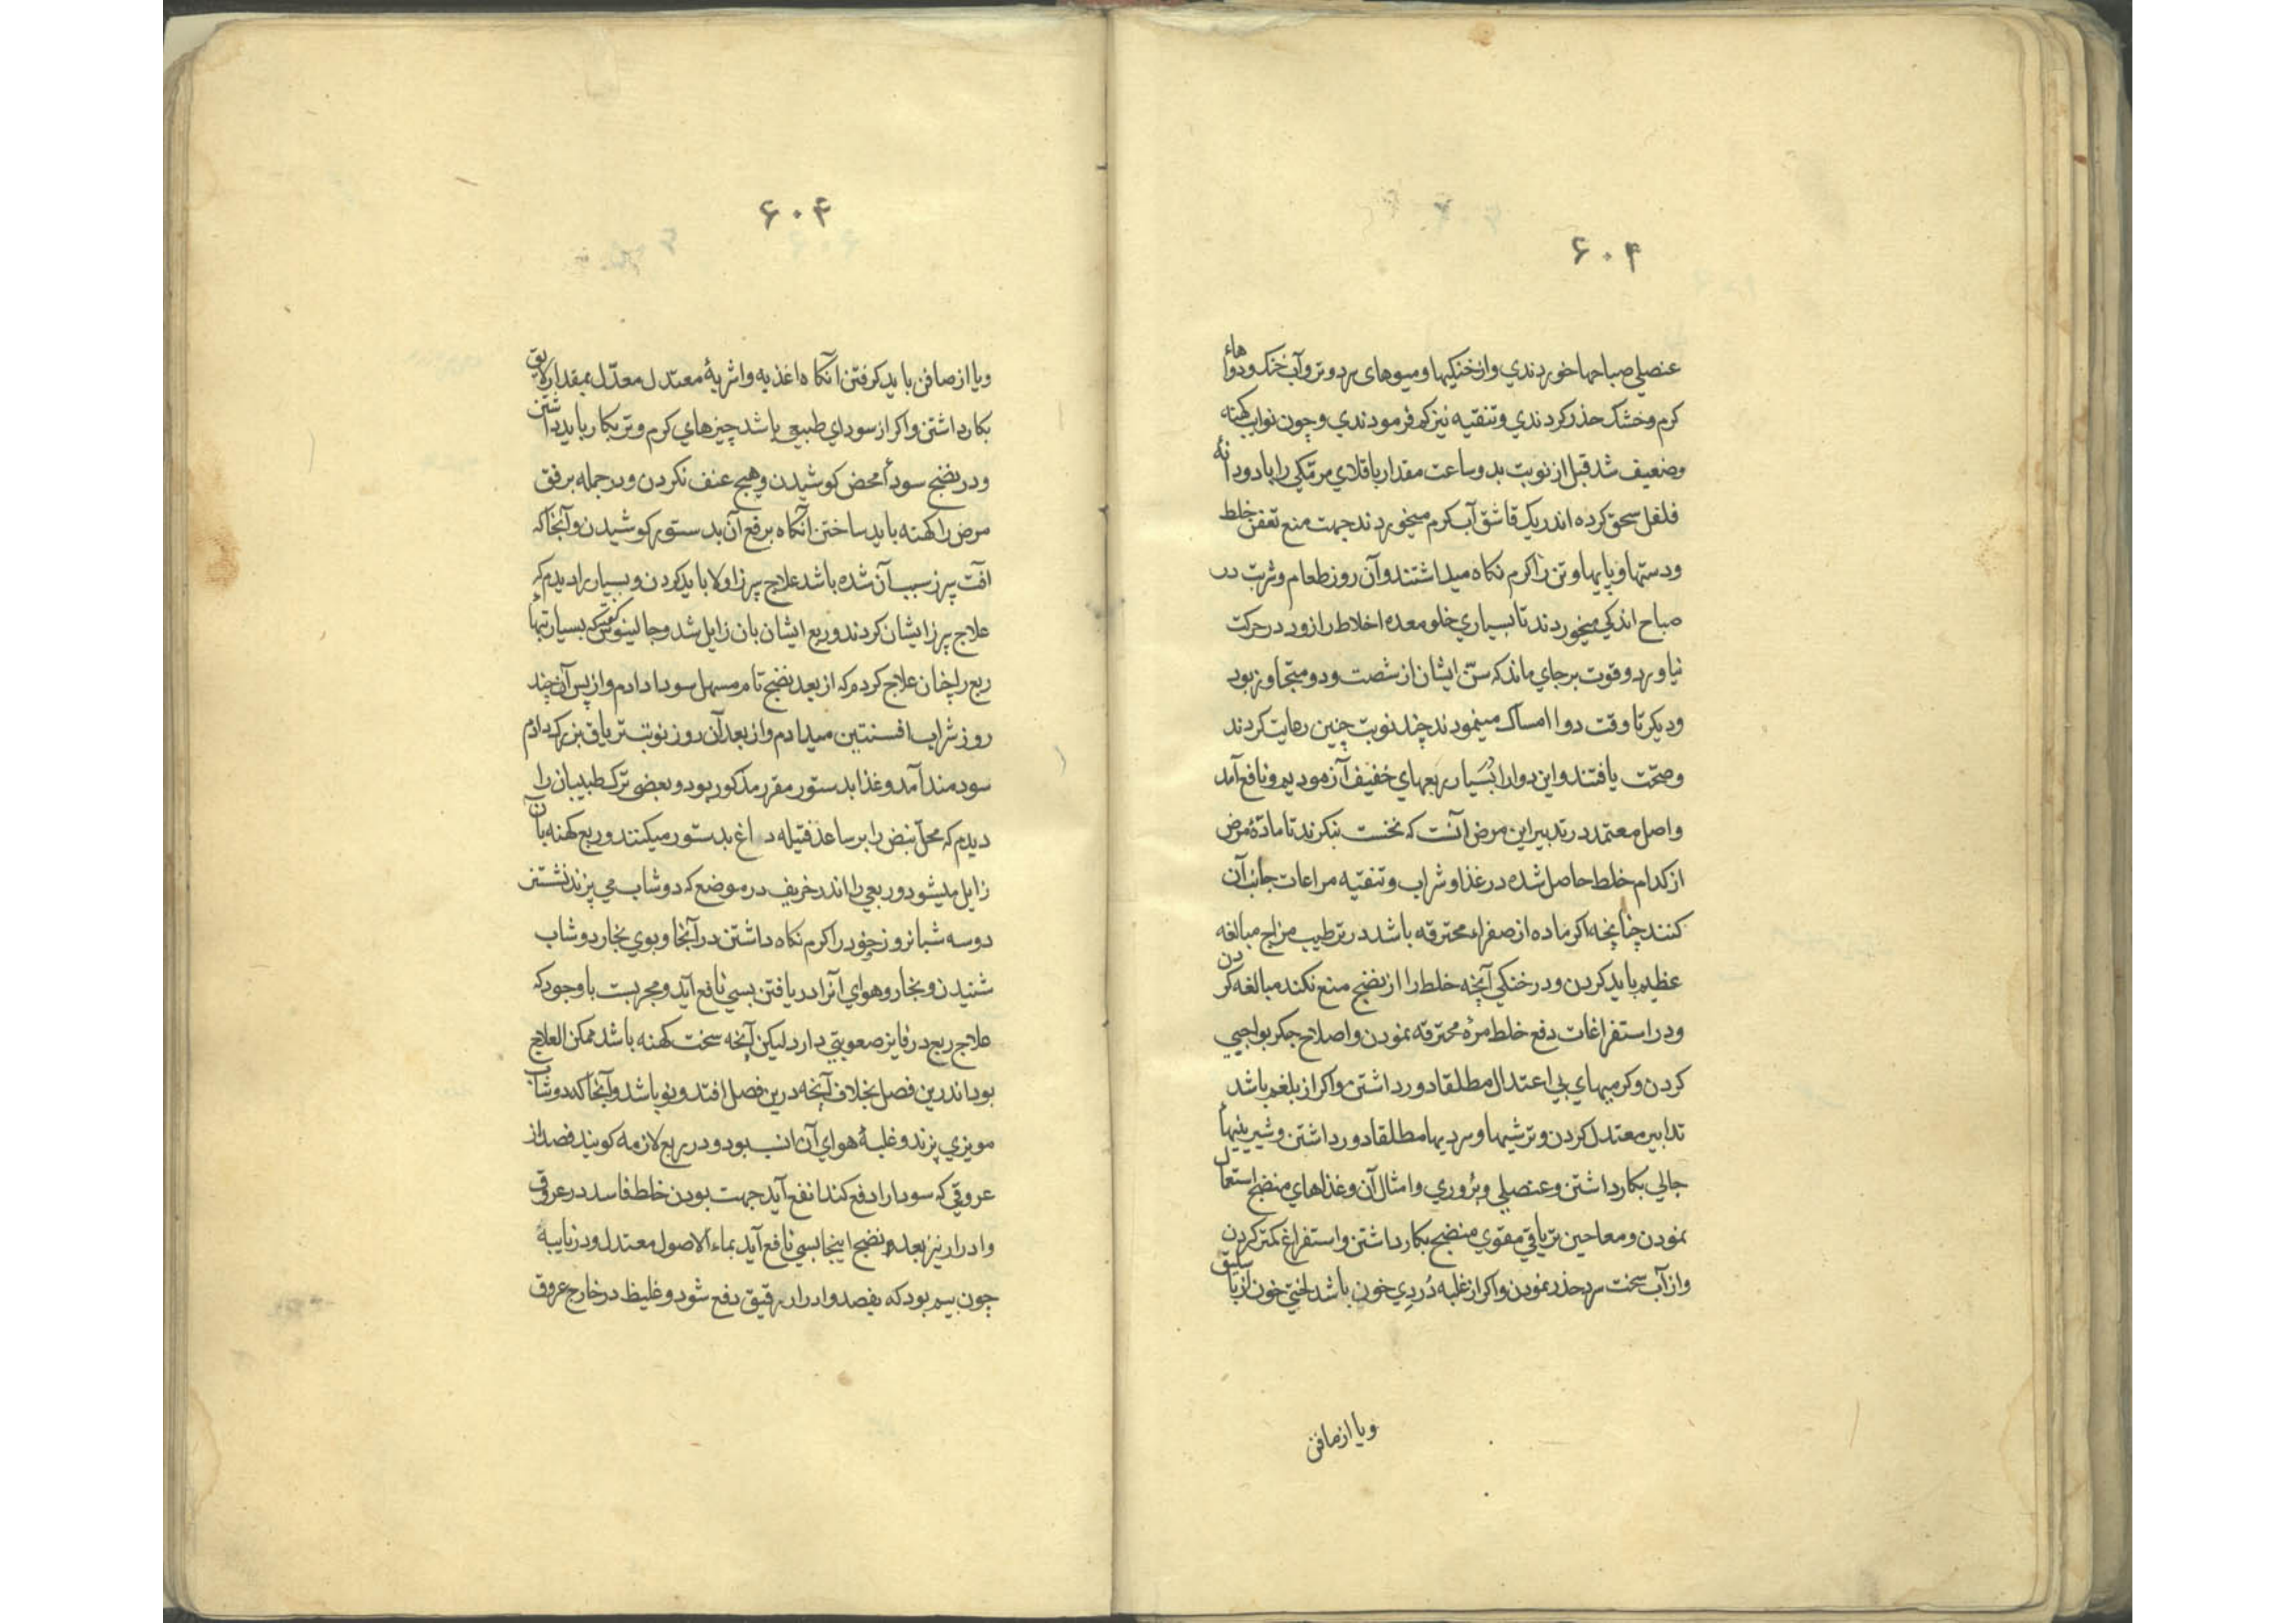 ۶۰۴
عنصلی صباحها خوردندي و از خنکیها و میوهای سرد و تر و آب خنک و دواهاء
کرم و خشک حذر کردندي و تنقیه نیز کم فرمودندي و چون نوایب کهنه
و ضعیف شد قبل از نوبت بدو ساعت مقدار باقلاي مر مکي را با دو دانۀ
فلفل سحق کرده اندر یک قاشق آب کرم میخوردند جهت منع تعفن خلط
و دستها و پایها و تن را کرم نکاه میداشتند و آن روز طعام و شربت در
صباح اندکي میخوردند تا بسیاري خلو معده اخلاط را زود در حرکت
نیاورد و قوت بر جاي ماند که سنّ ایشان از شصت و دو متجاوز بود
و دیکر تا وقت دوا امساک مینمودند چند نوبت چنین رعایت کردند
و صحّت یافتند و این دوا را بسیار ربعهاي خفیف آزمودیم و نافع آمد
و اصل معتمد در تدبیر این مرض آنست که نخست بنکرند تا مادّۀ مرض
از کدام خلط حاصل شده در غذا و شراب و تنقیه مراعات جانب آن
کنند چنانچه اکر ماده از صفراء محترقه باشد در ترطیب مزاج مبالغه
عظیم باید کردن و در خنکي آنچه خلط را از نضج منع نکند مبالغه کردن
و در استفراغات دفع خلط مرۀ محترقه نمودن و اصلاح جکر بواجبي
کردن و کرمیهاي بي اعتدال مطلقا دور داشتن و اکر از بلغم باشد
تدابیر معتدل کردن و ترشیها و سردیها مطلقا دور داشتن و شیرینیهاء
جالي بکار داشتن و عنصلي و بزوري و امثال آن و غذاهاي منضج استعمال
نمودن و معاجین تریاقي مقوي منضج بکار داشتن و استفراغ کمتر کردن
و از آب سخت سرد حذر نمودن و اکر از غلبه دُردي خون باشد لختي خون از باسلیق
و یا از صافن
۶۰۴
و یا از صافن باید کرفتن آنکاه اغذیه و اشربۀ معتدل معدّل بمقدار لایق
بکار داشتن و اکر از سوداي طبیعي باشد چیزهاي کرم و تر بکار باید داشتن
و در نضج سوداٴ محض کوشیدن و هیچ عنف نکردن و در جمله برفق
مرض را کهنه باید ساختن آنکاه برفع آن بدستور کوشیدن و آنجا که
آفت سپرز سبب آن شده باشد علاج سپرز اولا باید کردن و بسیار را دیدم که
علاج سپرز ایشان کردند و ربع ایشان بان زایل شد و جالینوس کفته که بسیار تبهاٴ
ربع را چنان علاج کردم که از بعد نضج تام مسهل سودا دادم و از پس آن چند
روز شراب افسنتین میدادم و از بعد آن روز نوبت تریاق بزرک دادم
سودمند آمد و غذا بدستور مقرر مذکور بود و بعضی ترک طبیبان را
دیدم که محلّ نبض را بر ساعد فتیله داغ بدستور میکنند و ربع کهنه بان
زایل میشود و ربعي را اندر خریف در موضع که دوشاب مي پزند نشستن
دو سه شبانروز و خود را کرم نکاه داشتن در آنجا و بوي بخار دوشاب
شنیدن و بخار و هواي آنرا دریافتن بسي نافع آید و مجربست با وجود که
علاج ربع در فایز صعوبتي دارد لیکن آنچه سخت کهنه باشد ممکن العلاج
بود اندرین فصل بخلاف آنچه درین فصل افتد و نو باشد و آنجا که دوشاب
مویزي پزند و غلبۀ هواي آن انسب بود و در ربع لازمه کویند فصد از
عروقي که سودا را دفع کند انفع آید جهت بودن خلط فاسد در عروق
و ادرار نیز بعد نضج اینجا بسي نافع آید بماء الاصول معتدل و در نایبۀ
چون بیم بود که بفصد و ادرار رقیق دفع شود و غلیظ در خارج عروق